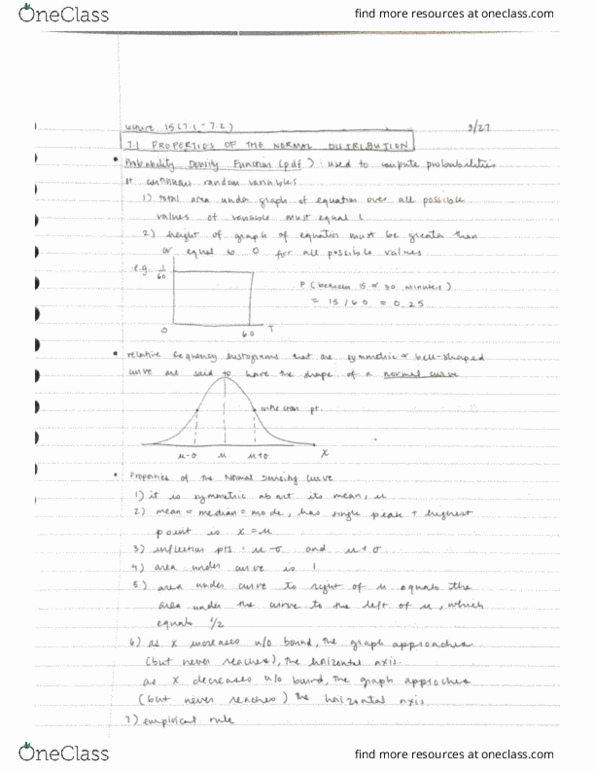 OneClass
find more resources at oneclass.com
Lecture 15 (7.1 - 7.2) 3/27
7.1 PROPERTIES OF THE NORMAL DISTRIBUTION
• Probability Density Function (pdf): used to compute probabilities
of continuous random variables
1) total area under graph of equation over all possible
values of variable must equal 1
2) height of graph of equation must be greater than
or equal to 0 for all possible values
e.g. 1/60
P (between 15 & 30 minutes)
= 15/60 = 0.25
0 60 T
• relative frequency histograms that are symmetric & bell-shaped
curve are said to have the shape of a normal curve
inflection pt.
μ-σ μ μ+σ X
• Properties of the Normal Density Curve
1) it is symmetric about its mean, μ
2) mean = median = mode, has single peak + highest
point is x = μ
3) inflection pts. μ-σ and μ+σ
4) area under curve is 1
5) area under curve to right of μ equals the
area under the curve to the left of μ, which
equals 1/2
6) as x increases w/o bound, the graph approaches
(but never reaches), the horizontal axis.
as x decreases w/o bound, the graph approches
(but never reaches) the horizontal axis
7) empirical rule
OneClass
find more resources at oneclass.com